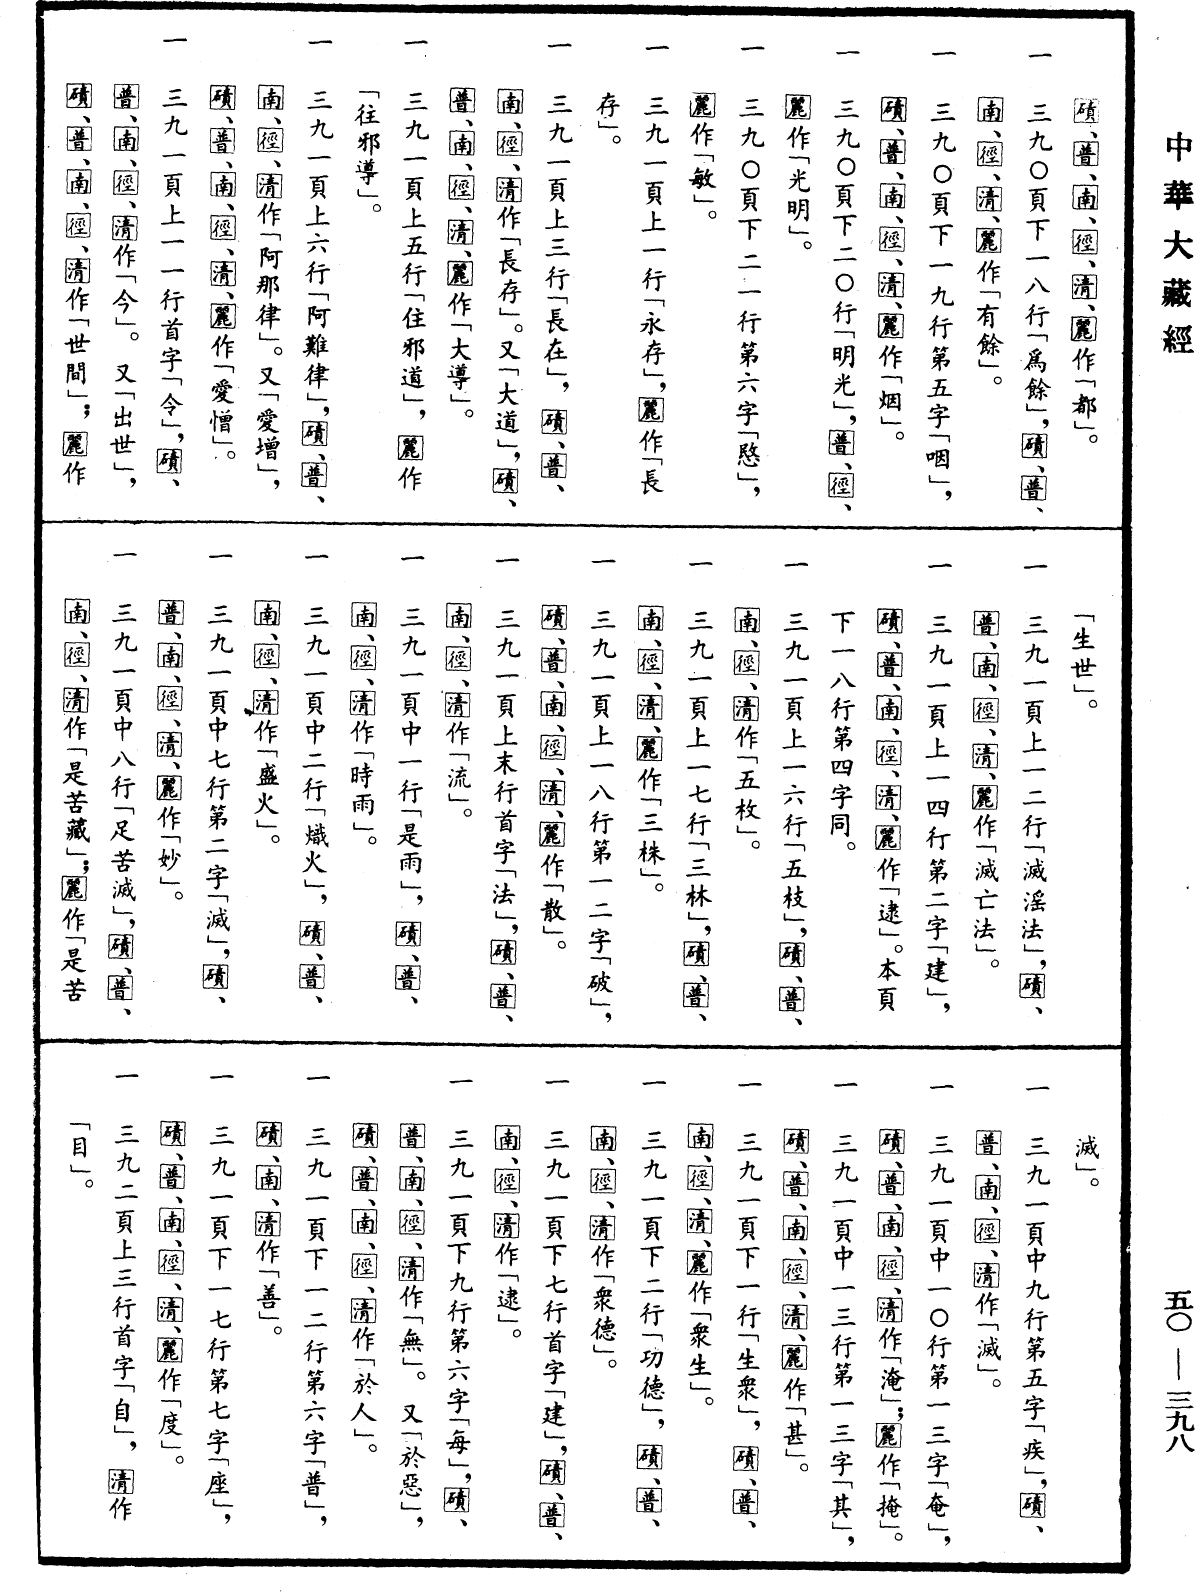 中華大藏經
磧、普、南、徑、清、麗作「都」。
一 三九〇頁下一八行「爲餘」，磧、普、
南、徑、清、麗作「有餘」。
一 三九〇頁下一九行第五字「咽」，
磧、普、南、徑、清、麗作「烟」。
一 三九〇頁下二〇行「明光」，普、徑、
麗作「光明」。
一 三九〇頁下二一行第六字「愍」，
麗作「敏」。
一 三九一頁上一行「永存」，麗作「長
存」。
一 三九一頁上三行「長在」，磧、普、
南、徑、清作「長存」。又「大道」，磧、
普、南、徑、清、麗作「大導」。
一 三九一頁上五行「住邪道」，麗作
「往邪導」。
一 三九一頁上六行「阿難律」，磧、普、
南、徑、清作「阿那律」。又「愛增」，
磧、普、南、徑、清、麗作「愛憎」。
一 三九一頁上一一行首字「令」，磧、
普、南、徑、清作「今」。又「出世」，
磧、普、南、徑、清作「世間」；麗作
「生世」。
一 三九一頁上一二行「滅滛法」，磧、
普、南、徑、清、麗作「滅亡法」。
一 三九一頁上一四行第二字「建」，
磧、普、南、徑、清、麗作「逮」。本頁
下一八行第四字同。
一 三九一頁上一六行「五枝」，磧、普、
南、徑、清作「五枚」。
一 三九一頁上一七行「三林」，磧、普、
南、徑、清、麗作「三株」。
一 三九一頁上一八行第一二字「破」，
磧、普、南、徑、清、麗作「散」。
一 三九一頁上末行首字「法」，磧、普、
南、徑、清作「流」。
一 三九一頁中一行「是雨」，磧、普、
南、徑、清作「時雨」。
一 三九一頁中二行「熾火」，磧、普、
南、徑、清作「盛火」。
一 三九一頁中七行第二字「滅」，磧、
普、南、徑、清、麗作「妙」。
一 三九一頁中八行「足苦滅」，磧、普、
南、徑、清作「是苦藏」；麗作「是苦
滅」。
一 三九一頁中九行第五字「疾」，磧、
普、南、徑、清作「滅」。
一 三九一頁中一〇行第一三字「奄」，
磧、普、南、徑、清作「淹」；麗作「掩」。
一 三九一頁中一三行第一三字「其」，
磧、普、南、徑、清、麗作「甚」。
一 三九一頁下一行「生衆」，磧、普、
南、徑、清、麗作「衆生」。
一 三九一頁下二行「功德」，磧、普、
南、徑、清作「衆德」。
一 三九一頁下七行首字「建」，磧、普、
南、徑、清作「逮」。
一 三九一頁下九行第六字「每」，磧、
普、南、徑、清作「無」。又「於惡」，
磧、普、南、徑、清作「於人」。
一 三九一頁下一二行第六字「普」，
磧、南、清作「善」。
一 三九一頁下一七行第七字「座」，
磧、普、南、徑、清、麗作「度」。
一 三九二頁上三行首字「自」，清作
「目」。
五〇—三九八